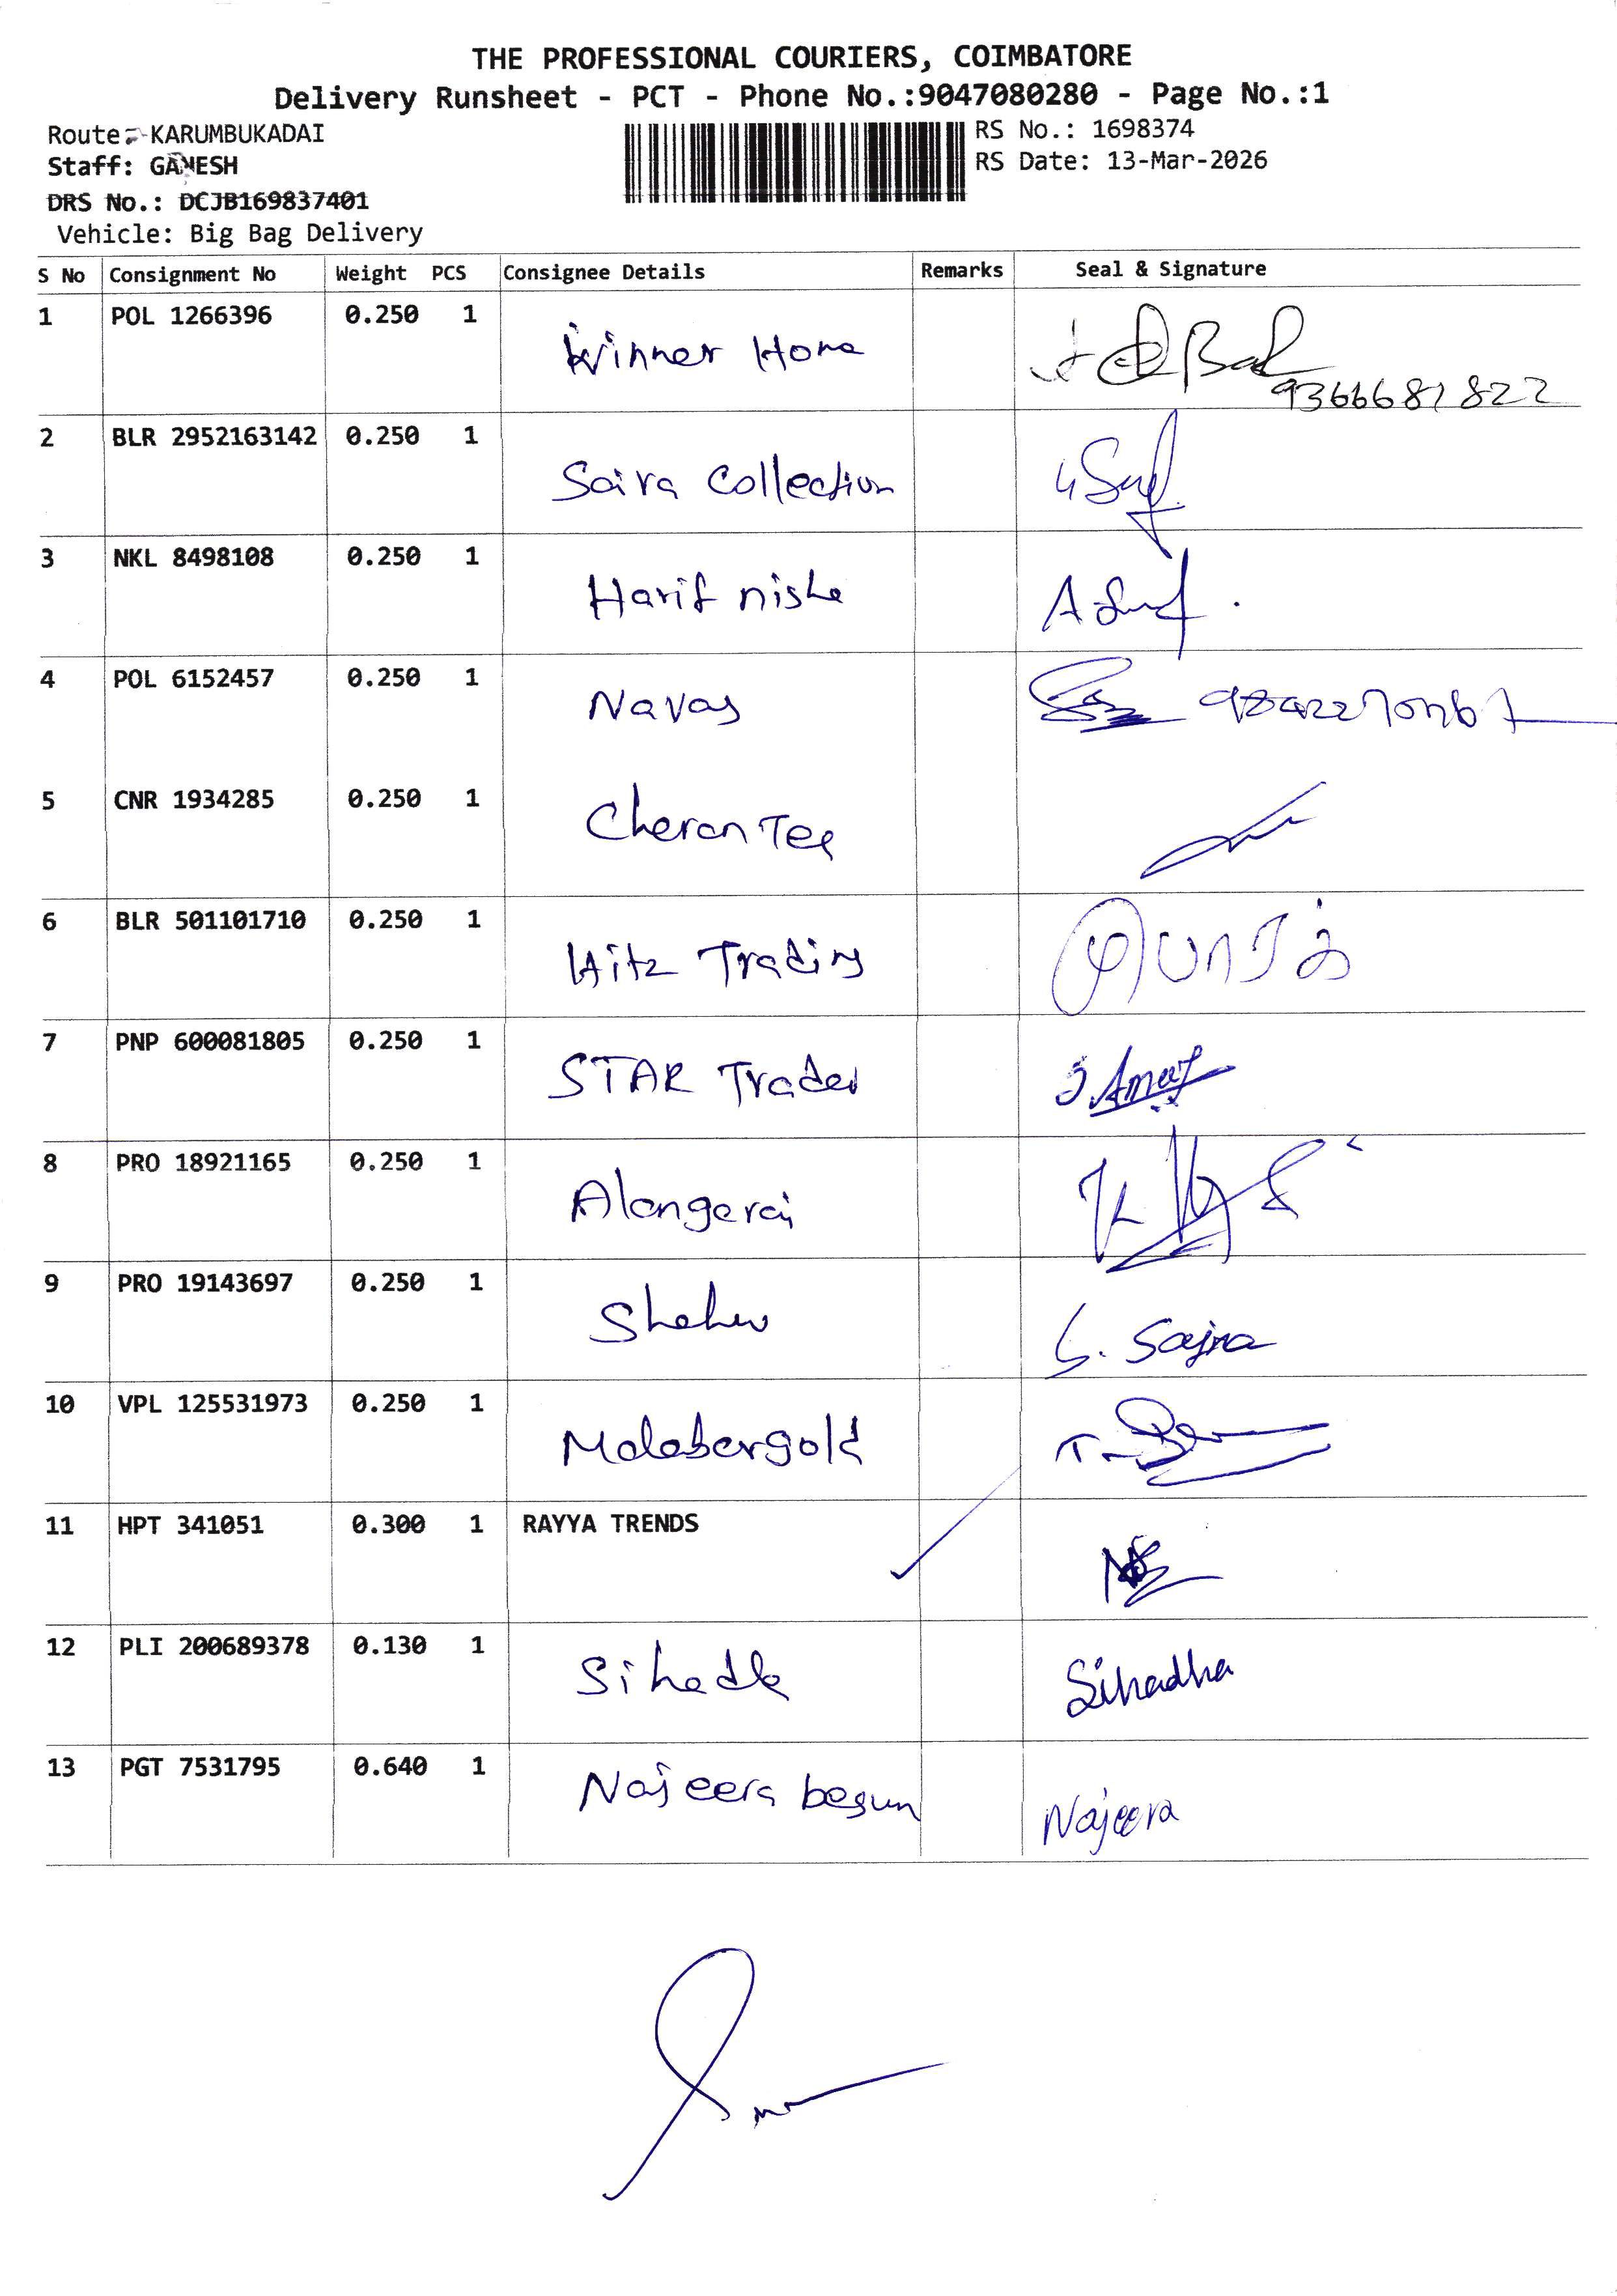 THE PROFESSIONAL COURIERS, COIMBATORE
Delivery Runsheet - PCT - Phone No.:9047080280 - Page No.:1
Route:-KARUMBUKADAI
RS No.: 1698374
Staff: GANESH
RS Date: 13-Mar-2026
DRS No.: DCJB169837401
Vehicle: Big Bag Delivery
S No Consignment No Weight PCS Consignee Details Remarks Seal & Signature
1 POL 1266396 0.250 1 Winner Home
9366681822
2 BLR 2952163142 0.250 1 Saira Collection
3 NKL 8498108 0.250 1 Harif nisha
4 POL 6152457 0.250 1 Navas
5 CNR 1934285 0.250 1 Cheran Tea
6 BLR 501101710 0.250 1 Hitz Trading
7 PNP 600081805 0.250 1 STAR Trades
8 PRO 18921165 0.250 1
9 PRO 19143697 0.250 1 S. Sajna
10 VPL 125531973 0.250 1 Malabargold
11 HPT 341051 0.300 1 RAYYA TRENDS
12 PLI 200689378 0.130 1 Sihadha Sihadha
13 PGT 7531795 0.640 1 Najeera begum Najeera